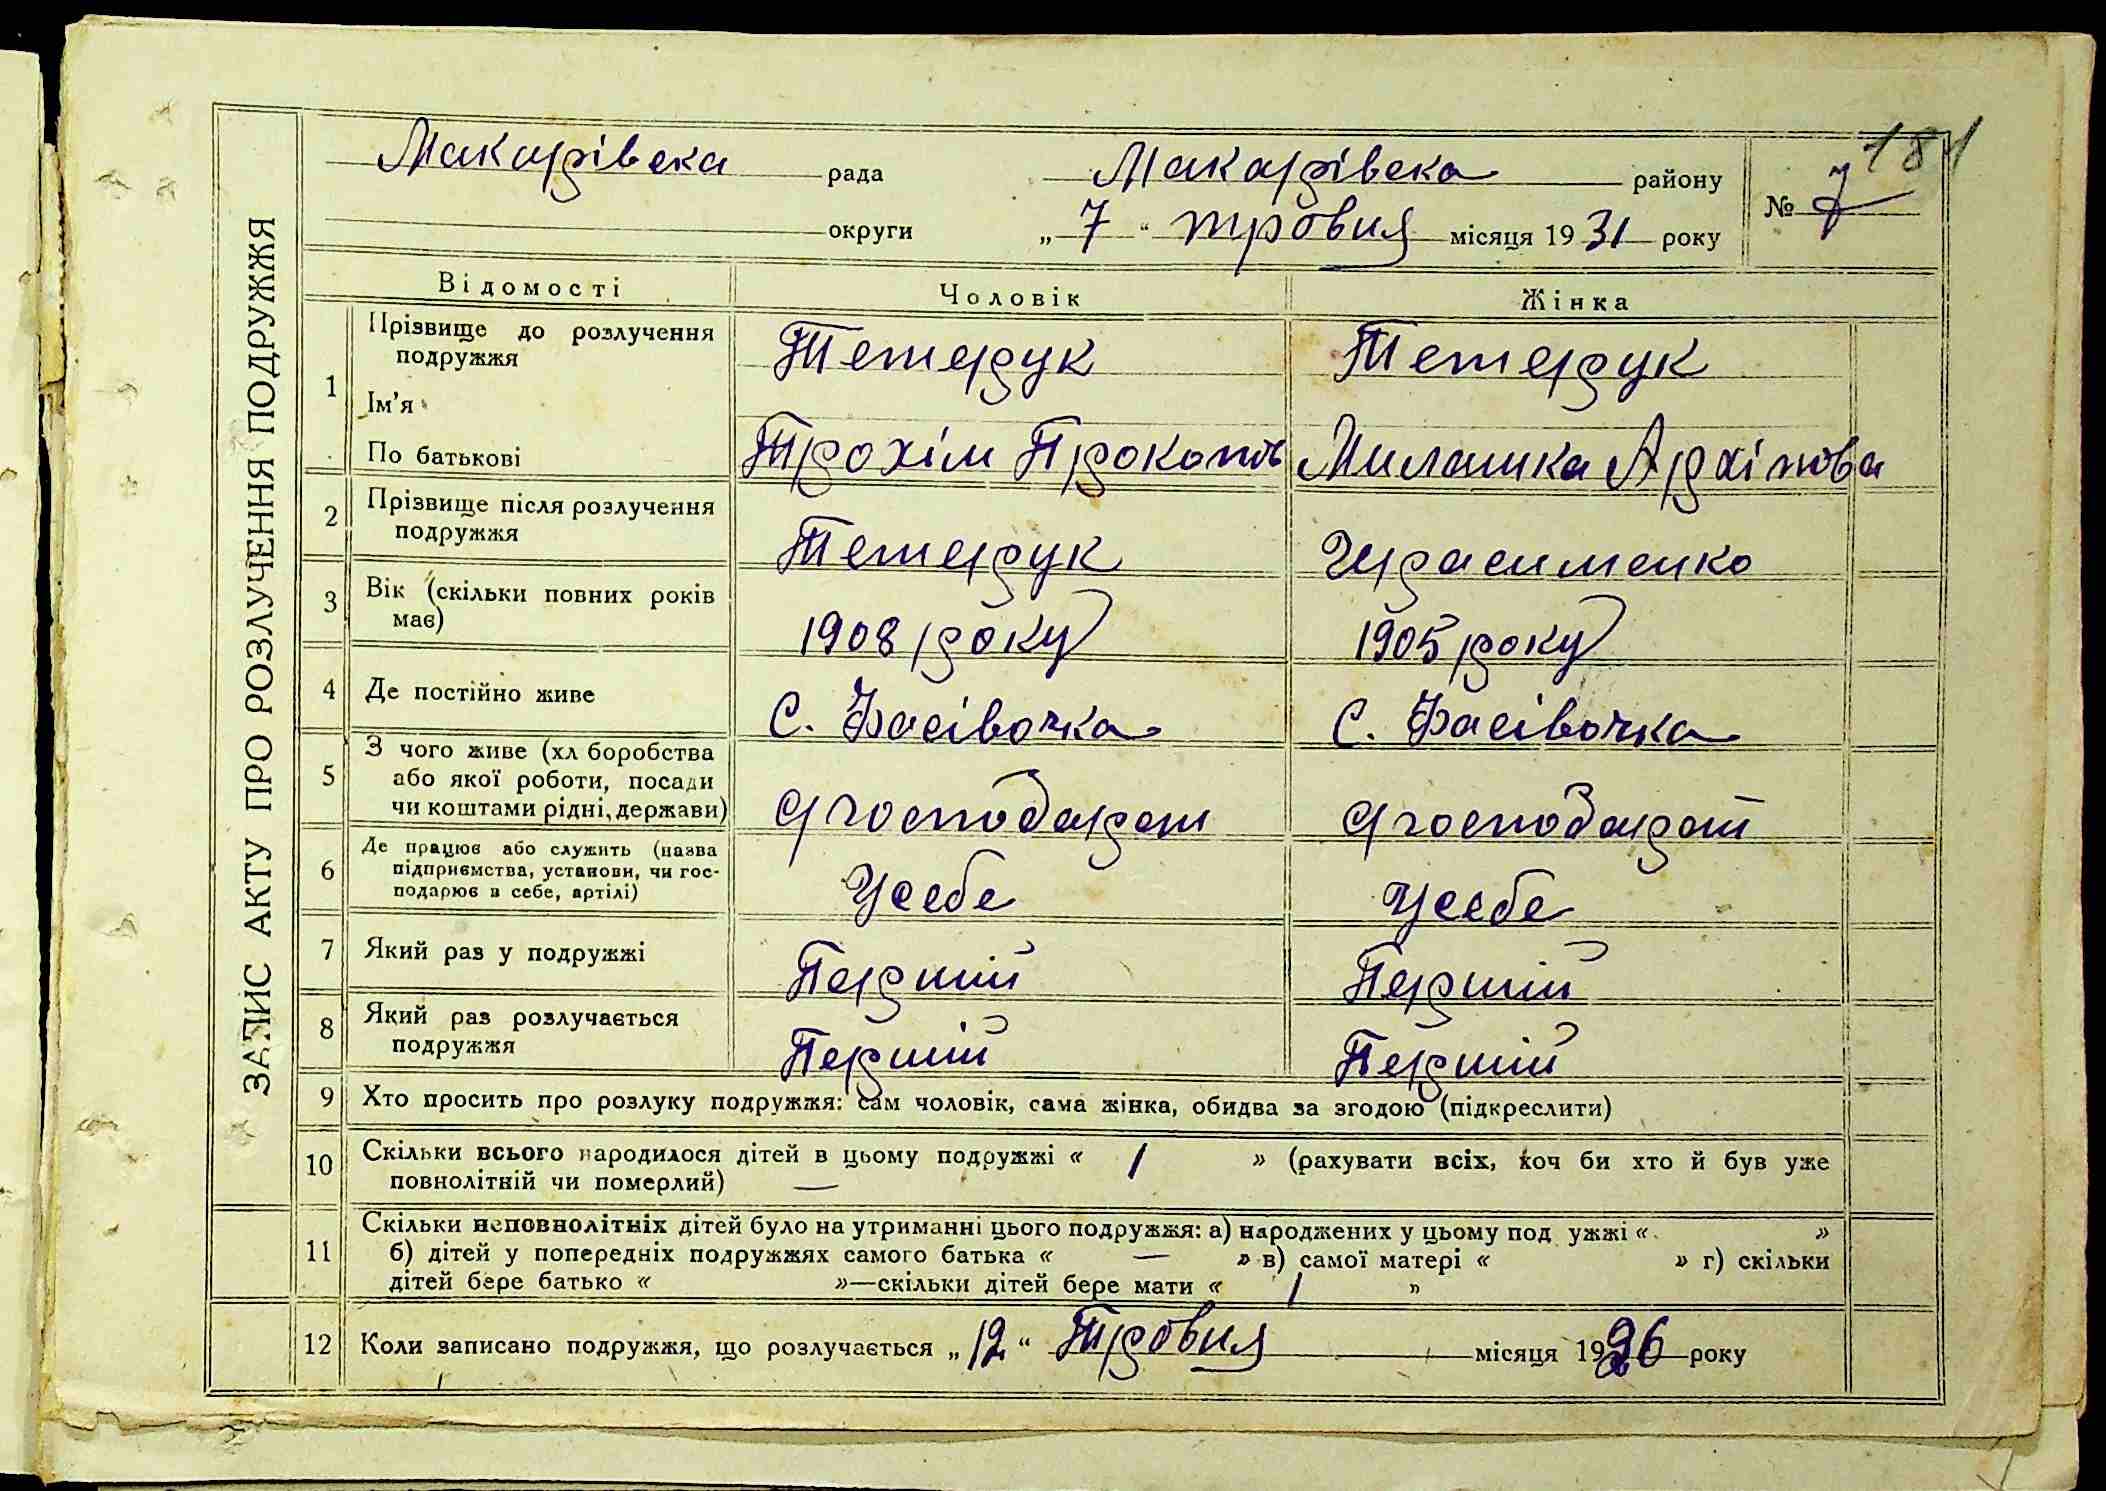 ЗАПИС АКТУ ПРО РОЗЛУЧЕННЯ ПОДРУЖЖЯ
181
Макарівска рада Макарівска району № 7
округи „ 7 “ тровня місяця 19 31 року
Відомості Чоловік Жінка
1 Прізвище до розлучення подружжя Тетерук Тетерук
Ім'я
По батькові Трохім Прокопів Милашка Архіпова
2 Прізвище після розлучення подружжя Тетерук Герасименко
3 Вік (скільки повних років має) 1908 року 1905 року
4 Де постійно живе с. Фасівочка с. Фасівочка
5 З чого живе (хл боробства або якої роботи, посади чи коштами рідні, держави) господарст господарст
6 Де працює або служить (назва підприємства, установи, чи господарює в себе, артілі) Усебе Усебе
7 Який раз у подружжі Першій Першій
8 Який раз розлучається подружжя Першій Першій
9 Хто просить про розлуку подружжя: сам чоловік, сама жінка, обидва за згодою (підкреслити)
10 Скільки всього народилося дітей в цьому подружжі « 1 » (рахувати всіх, хоч би хто й був уже
повнолітній чи померлий) —
11 Скільки неповнолітніх дітей було на утриманні цього подружжя: а) народжених у цьому под ужжі « »
б) дітей у попередніх подружжях самого батька « — » в) самої матері « » г) скільки
дітей бере батько « »—скільки дітей бере мати « 1 »
12 Коли записано подружжя, що розлучається „ 12 “ Тровня місяця 1926 року